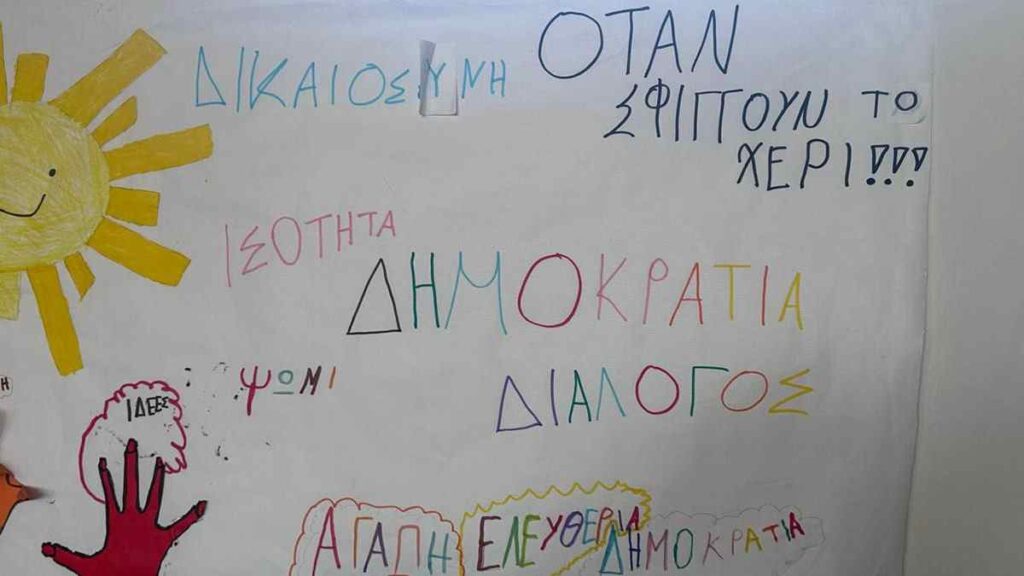 ΔΙΚΑΙΟΣΥΝΗ
ΟΤΑΝ
ΣΦΙΓΓΟΥΝ ΤΟ
ΧΕΡΙ!!!
ΙΣΟΤΗΤΑ
ΔΗΜΟΚΡΑΤΙΑ
ΨΩΜΙ
ΔΙΑΛΟΓΟΣ
ΙΔΕΕΣ
ΑΓΑΠΗ
ΕΛΕΥΘΕΡΙΑ
ΔΗΜΟΚΡΑΤΙΑ